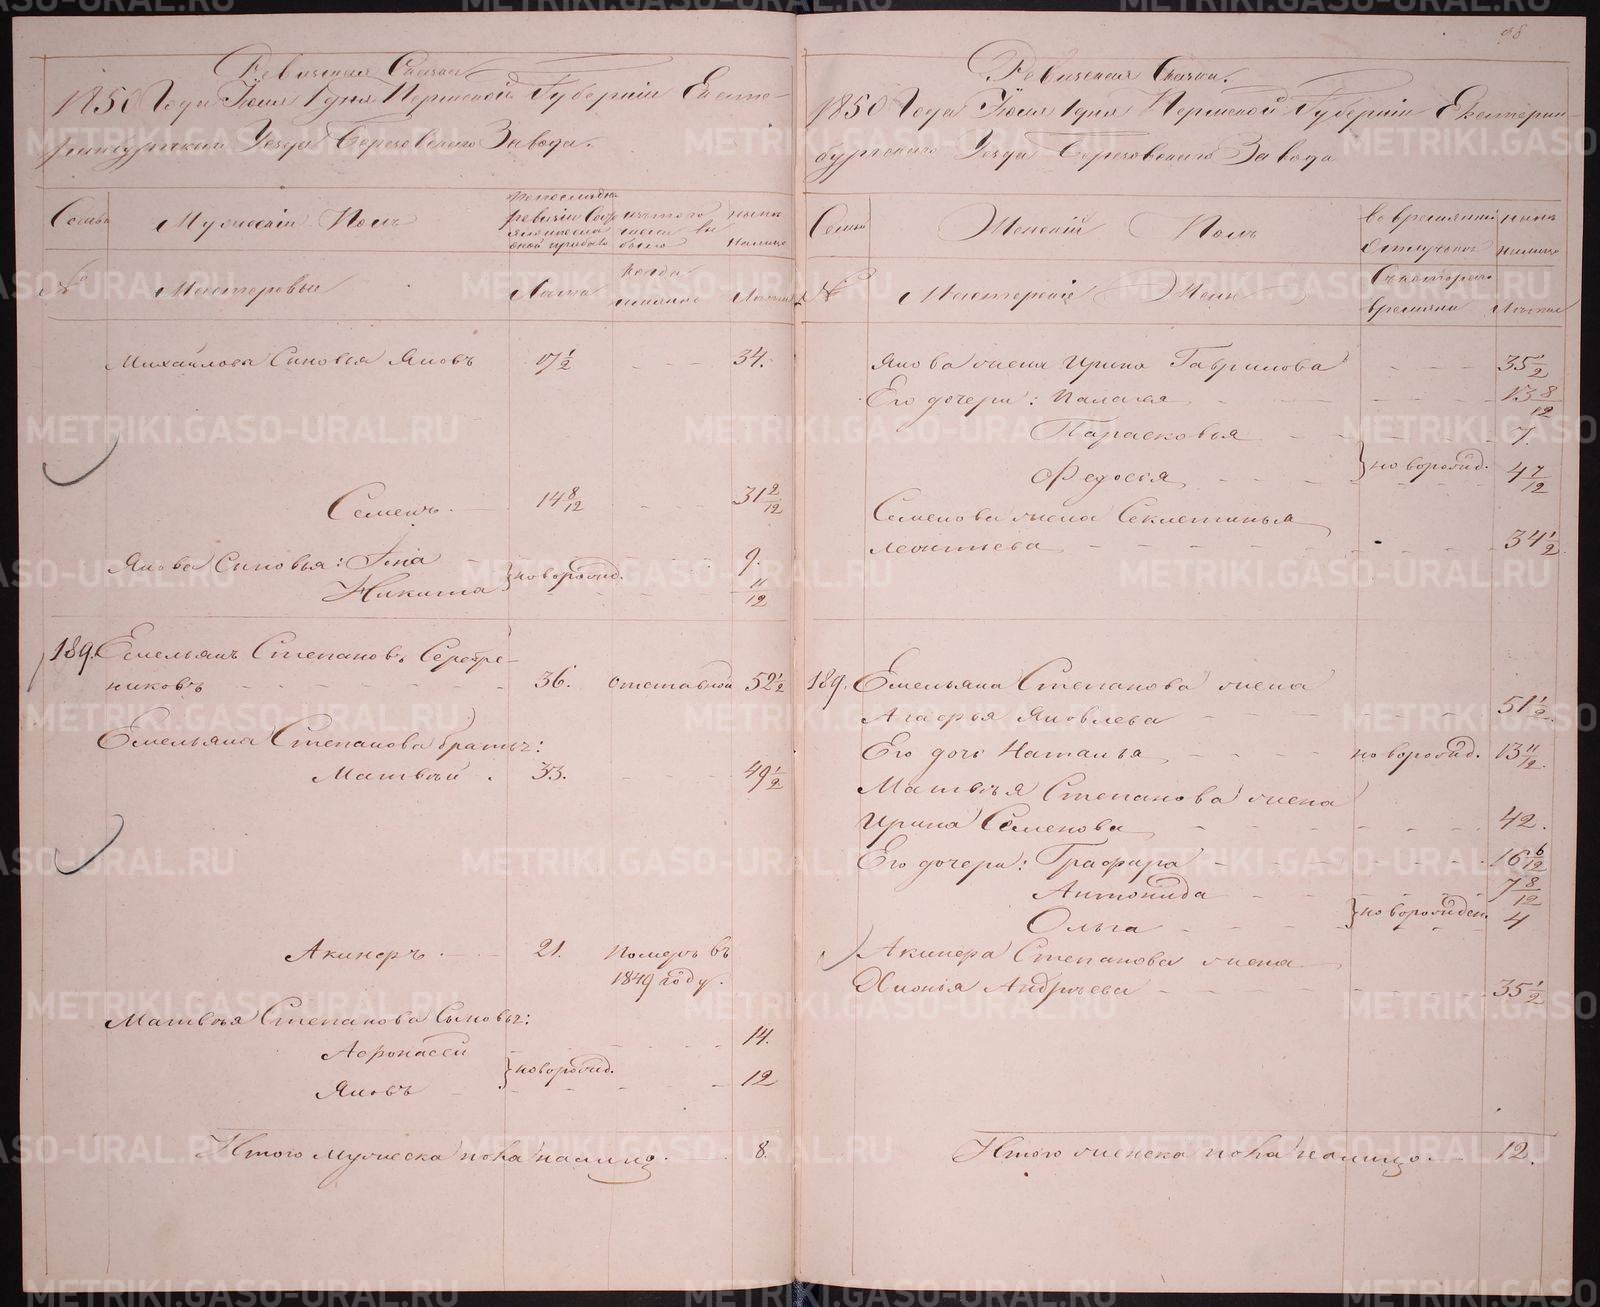 98
Ревизская Сказка.
1850 Года Июля 1 дня Пермской Губернiи Екате-
ринбургскаго Уезда Березовского Завода.
Семьи
Мужескiй Полъ
По последней
ревизiи
ныне
налицо
№
Мастеровые
Лета
когда
именно
Лета
Михайлова Сыновья Яковъ 17 1/2 34.
Семенъ 14 8/12 31 2/12
Якова Сыновья: Iона 9.
Никита } новорожд. 11/12
189. Емельянъ Степановъ Серебре-
никовъ 36. отставной 52 1/2
Емельяна Степанова братья:
Матвѣй 33. 49 1/2
Акинфъ 21. Померъ въ
1849 году.
Матвѣя Степанова Сыновья:
Афонасей 14.
} новорожд.
Яковъ 12
Итого мужеска пола налицо 8.
Ревизская Сказка.
1850 Года Июля 1 дня Пермской Губернiи Екатерин-
бургскаго Уезда Березовского Завода
Семьи
Женскiй Полъ
во временной
отлучке
ныне
налицо
№
Мастерскiе Жены
Съ котораго
времени
Лета
Якова жена Ирина Гаврилова 35 1/2
Его дочери: Палагея 13 8/12
Парасковья 7
Федосья } новорожд. 4 7/12
Семенова жена Секлетинья
Леонтьева 34 1/2
189. Емельяна Степанова жена
Агафья Яковлева 51 1/2
Его дочь Наталья новорожд. 13 11/12
Матвѣя Степанова жена
Ирина Семенова 42.
Его дочери: Графира 16 6/12
Антонида 7 8/12
Ольга } новорожден. 4
Акинфа Степанова жена
Хионья Андрѣева 35 1/2
Итого женска пола налицо 12.
METRIKI.GASO-URAL.RU